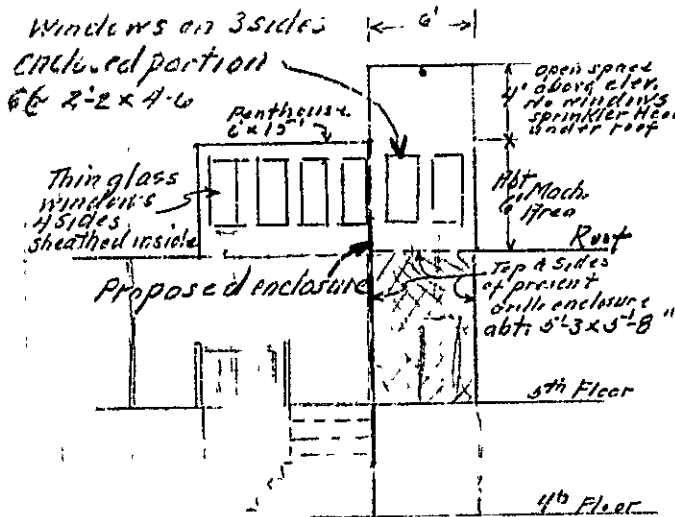 Windows on 3 sides
Enclosed portion
2'-2 x 4-6
6'
open space
4' above elev.
No windows
sprinkler Head
under roof
Penthouse
6' x 15'
Thin glass
windows
4 sides
sheathed inside
Abt
6' Mach.
Area
Roof
Proposed enclosure
Top & Sides
of present
grille enclosure
abt. 5'-3 x 5'-8"
5th Floor
4th Floor